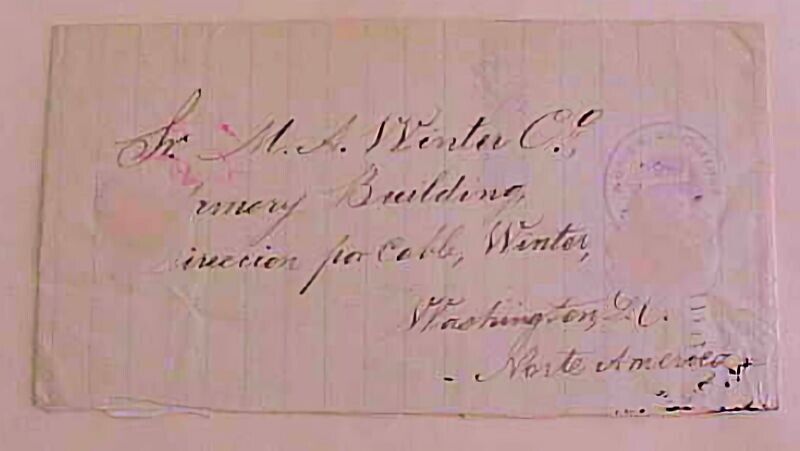 Sr. M. A. Winter Co.,
rmory Building,
ireccion por cable, Winter,
Washington, D.C.
Norte America